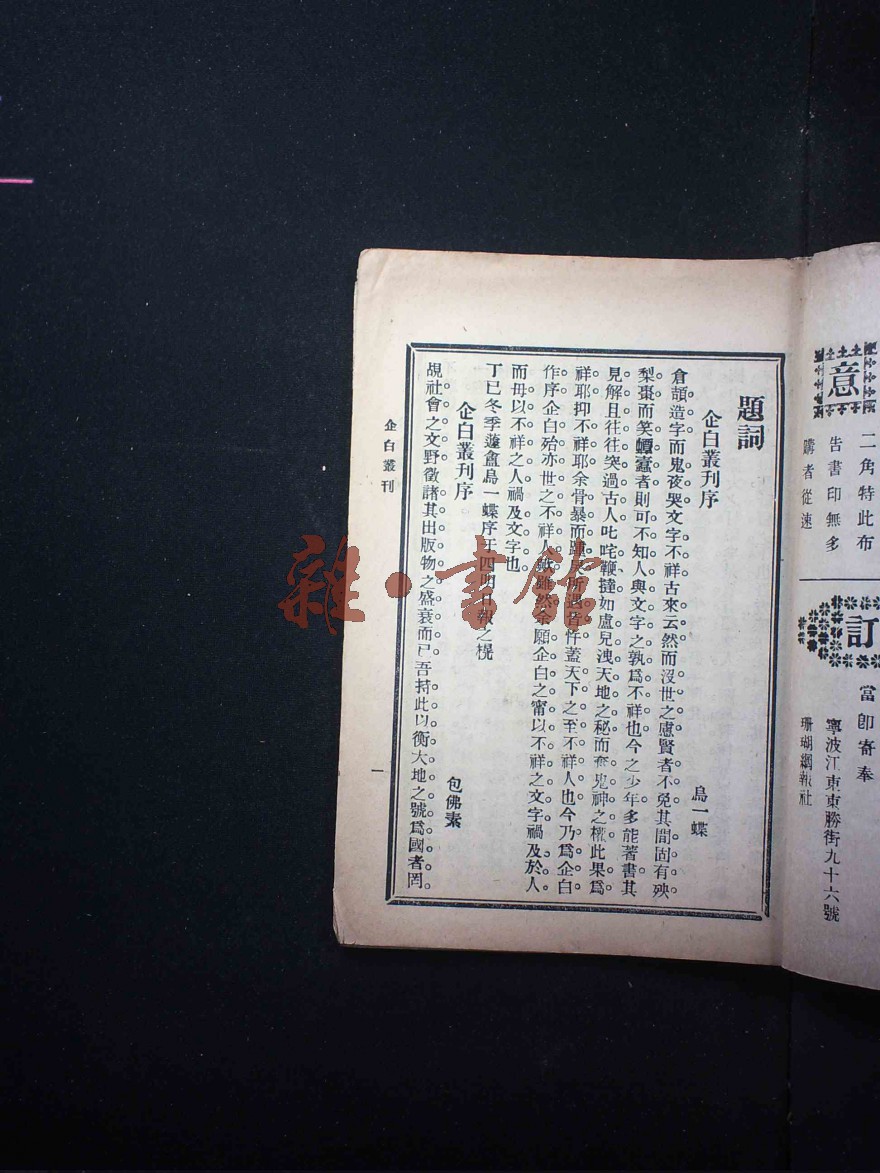 意
二角特此布
告書印無多
購者從速
訂
當卽寄奉
寧波江東東勝街九十六號
珊瑚網報社
題詞
企白叢刊序
烏一蝶
倉頡造字而鬼夜哭文字不祥古來云然而沒世之慮賢者不免其間固有殃
梨棗而笑蟫蠹者則可不知人與文字之孰爲不祥也今之少年多能著書其
見解且往往突過古人叱咤鞭撻如盧兒洩天地之秘而奪鬼神之權此果爲
祥耶抑不祥耶余骨暴而 所遇皆忤蓋天下之至不祥人也今乃爲企白
作序企白殆亦世之不祥人歟雖然余願企白之甯以不祥之文字禍及於人
而毋以不祥之人禍及文字也
丁巳冬季蘧盦烏一蝶序于四明日報之榥
企白叢刊序
包佛素
覘社會之文野徵諸其出版物之盛衰而已吾持此以衡大地之號爲國者罔
企白叢刊
一
雜·書館